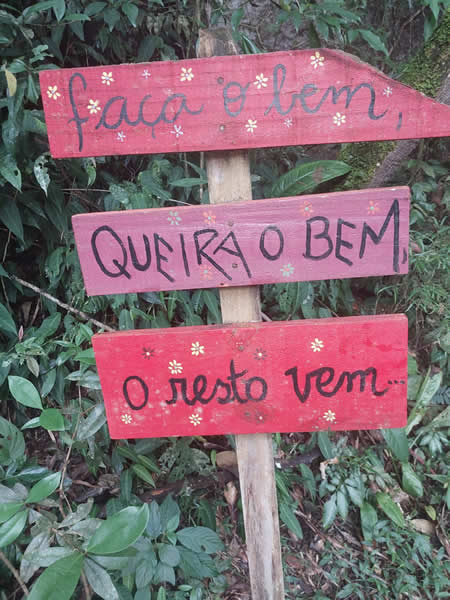 faça o bem,
QUEIRA O BEM,
o resto vem...